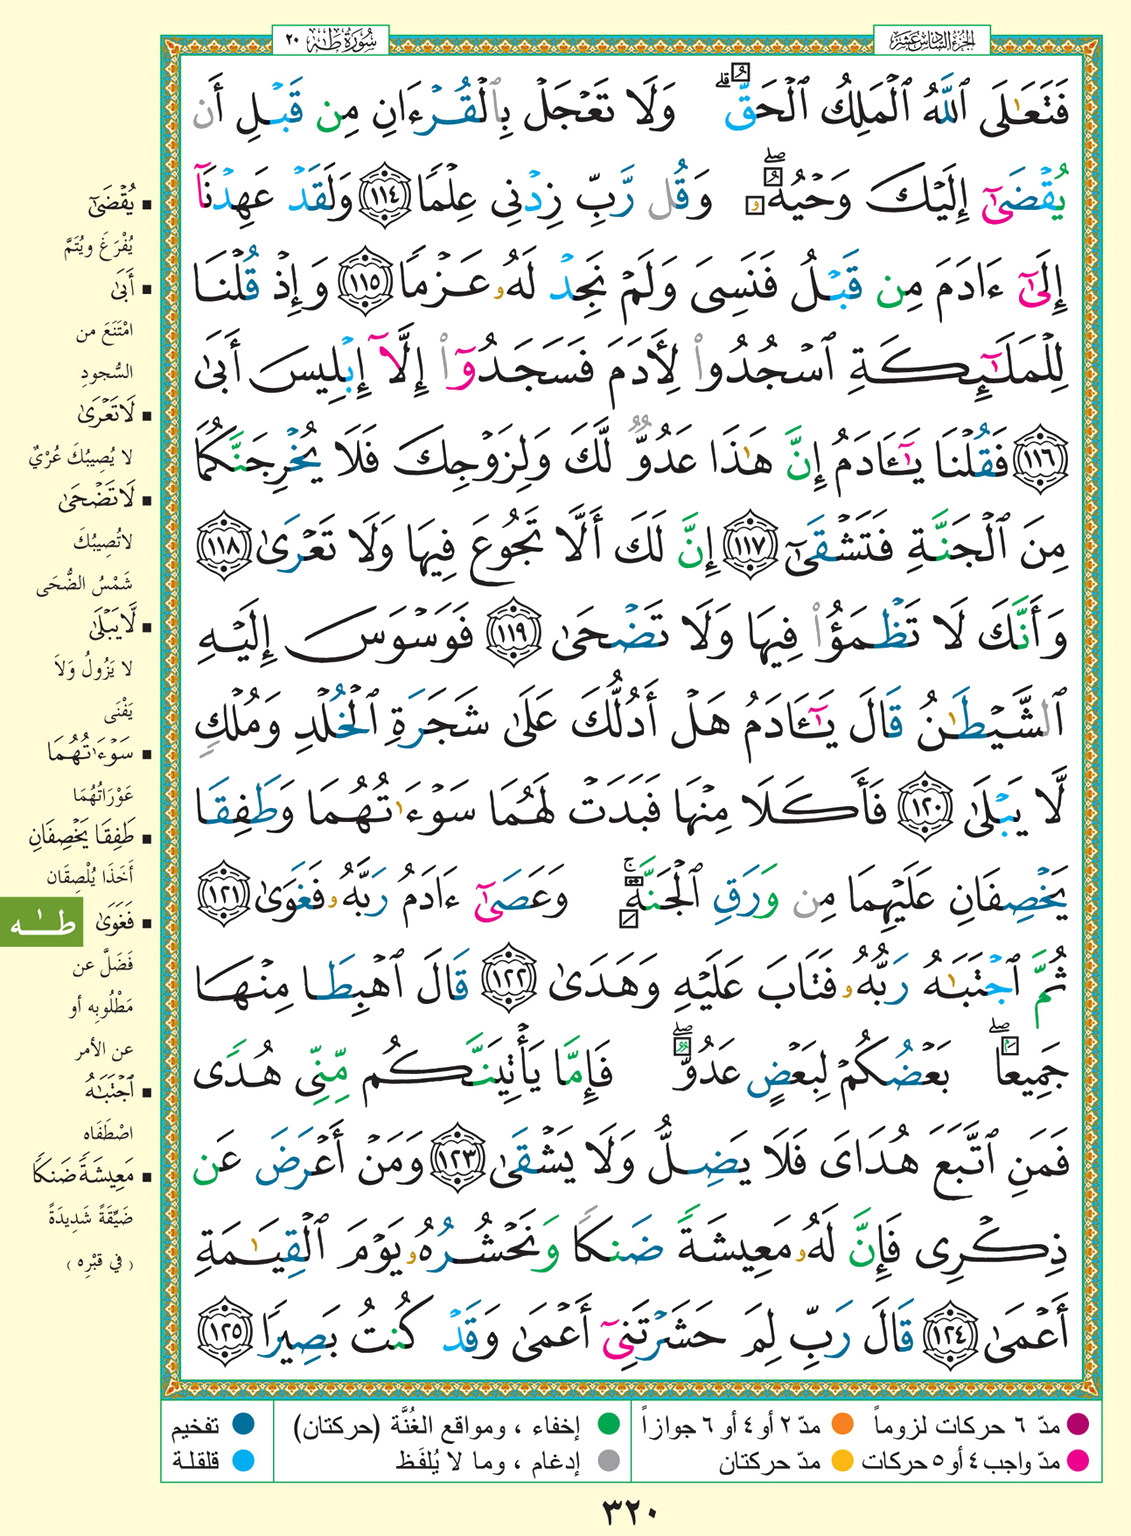 الجزء السادس عشر
سورة طه ٢٠
فَتَعَـٰلَى ٱللَّهُ ٱلْمَلِكُ ٱلْحَقُّ ۗ وَلَا تَعْجَلْ بِٱلْقُرْءَانِ مِن قَبْلِ أَن
يُقْضَىٰٓ إِلَيْكَ وَحْيُهُۥ ۖ وَقُل رَّبِّ زِدْنِى عِلْمًا ١١٤ وَلَقَدْ عَهِدْنَآ
إِلَىٰٓ ءَادَمَ مِن قَبْلُ فَنَسِىَ وَلَمْ نَجِدْ لَهُۥ عَزْمًا ١١٥ وَإِذْ قُلْنَا
لِلْمَلَـٰٓئِكَةِ ٱسْجُدُوا۟ لِـَٔادَمَ فَسَجَدُوٓا۟ إِلَّآ إِبْلِيسَ أَبَىٰ
١١٦ فَقُلْنَا يَـٰٓـَٔادَمُ إِنَّ هَـٰذَا عَدُوٌّ لَّكَ وَلِزَوْجِكَ فَلَا يُخْرِجَنَّكُمَا
مِنَ ٱلْجَنَّةِ فَتَشْقَىٰٓ ١١٧ إِنَّ لَكَ أَلَّا تَجُوعَ فِيهَا وَلَا تَعْرَىٰ ١١٨
وَأَنَّكَ لَا تَظْمَؤُا۟ فِيهَا وَلَا تَضْحَىٰ ١١٩ فَوَسْوَسَ إِلَيْهِ
ٱلشَّيْطَـٰنُ قَالَ يَـٰٓـَٔادَمُ هَلْ أَدُلُّكَ عَلَىٰ شَجَرَةِ ٱلْخُلْدِ وَمُلْكٍ
لَّا يَبْلَىٰ ١٢٠ فَأَكَلَا مِنْهَا فَبَدَتْ لَهُمَا سَوْءَٰتُهُمَا وَطَفِقَا
يَخْصِفَانِ عَلَيْهِمَا مِن وَرَقِ ٱلْجَنَّةِ ۚ وَعَصَىٰٓ ءَادَمُ رَبَّهُۥ فَغَوَىٰ ١٢١
ثُمَّ ٱجْتَبَـٰهُ رَبُّهُۥ فَتَابَ عَلَيْهِ وَهَدَىٰ ١٢٢ قَالَ ٱهْبِطَا مِنْهَا
جَمِيعًۢا ۖ بَعْضُكُمْ لِبَعْضٍ عَدُوٌّ ۖ فَإِمَّا يَأْتِيَنَّكُم مِّنِّى هُدًى
فَمَنِ ٱتَّبَعَ هُدَاىَ فَلَا يَضِلُّ وَلَا يَشْقَىٰ ١٢٣ وَمَنْ أَعْرَضَ عَن
ذِكْرِى فَإِنَّ لَهُۥ مَعِيشَةً ضَنكًا وَنَحْشُرُهُۥ يَوْمَ ٱلْقِيَـٰمَةِ
أَعْمَىٰ ١٢٤ قَالَ رَبِّ لِمَ حَشَرْتَنِىٓ أَعْمَىٰ وَقَدْ كُنتُ بَصِيرًا ١٢٥
■ يُقْضَىٰٓ
يُفْرَغَ ويُتَمَّ
■ أَبَىٰ
امْتَنَعَ من
السُّجودِ
■ لَا تَعْرَىٰ
لا يُصِيبُكَ عُرْيٌ
■ لَا تَضْحَىٰ
لا تُصِيبُكَ
شَمْسُ الضُّحَى
■ لَّا يَبْلَىٰ
لا يَزُولُ وَلاَ
يَفْنَى
■ سَوْءَٰتُهُمَا
عَوْرَاتُهُمَا
■ طَفِقَا يَخْصِفَانِ
أَخَذَا يُلْصِقَان
■ فَغَوَىٰ
طـٰه
فَضَلَّ عن
مَطْلُوبِه أو
عن الأمر
■ ٱجْتَبَـٰهُ
اصْطَفَاه
■ مَعِيشَةً ضَنكًا
ضَيِّقَةً شَدِيدَةً
( في قبْرِه )
مدّ ٦ حركات لزوماً مدّ ٢ أو ٤ أو ٦ جوازاً إخفاء ، ومواقع الغُنَّة (حركتان) تفخيم
مدّ واجب ٤ أو ٥ حركات مدّ حركتان إدغام ، وما لا يُلفَظ قلقلة
٣٢٠